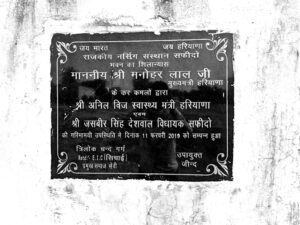 जय भारत जय हरियाणा
राजकीय नर्सिंग संस्थान सफीदों
भवन का शिलान्यास
माननीय श्री मनोहर लाल जी
मुख्यमंत्री हरियाणा
के कर कमलों द्वारा
श्री अनिल विज स्वास्थ्य मंत्री हरियाणा
एवम
श्री जसबीर सिंह देशवाल विधायक सफीदों
की गरिमामयी उपस्थिति में दिनांक 11 फरवरी 2019 को सम्पन्न हुआ
त्रिलोक चन्द गर्ग
उपायुक्त
जीन्द